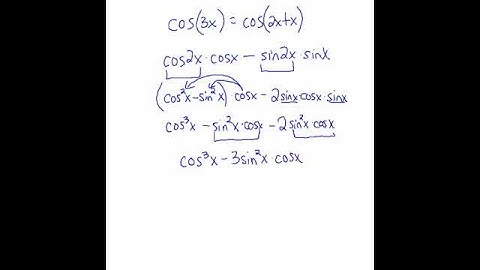 cos(3x) = cos(2x+x)
cos2x · cosx − sin2x · sinx
(cos²x−sin²x) · cosx − 2sinx·cosx·sinx
cos³x − sin²x·cosx − 2sin²x·cosx
cos³x − 3sin²x·cosx